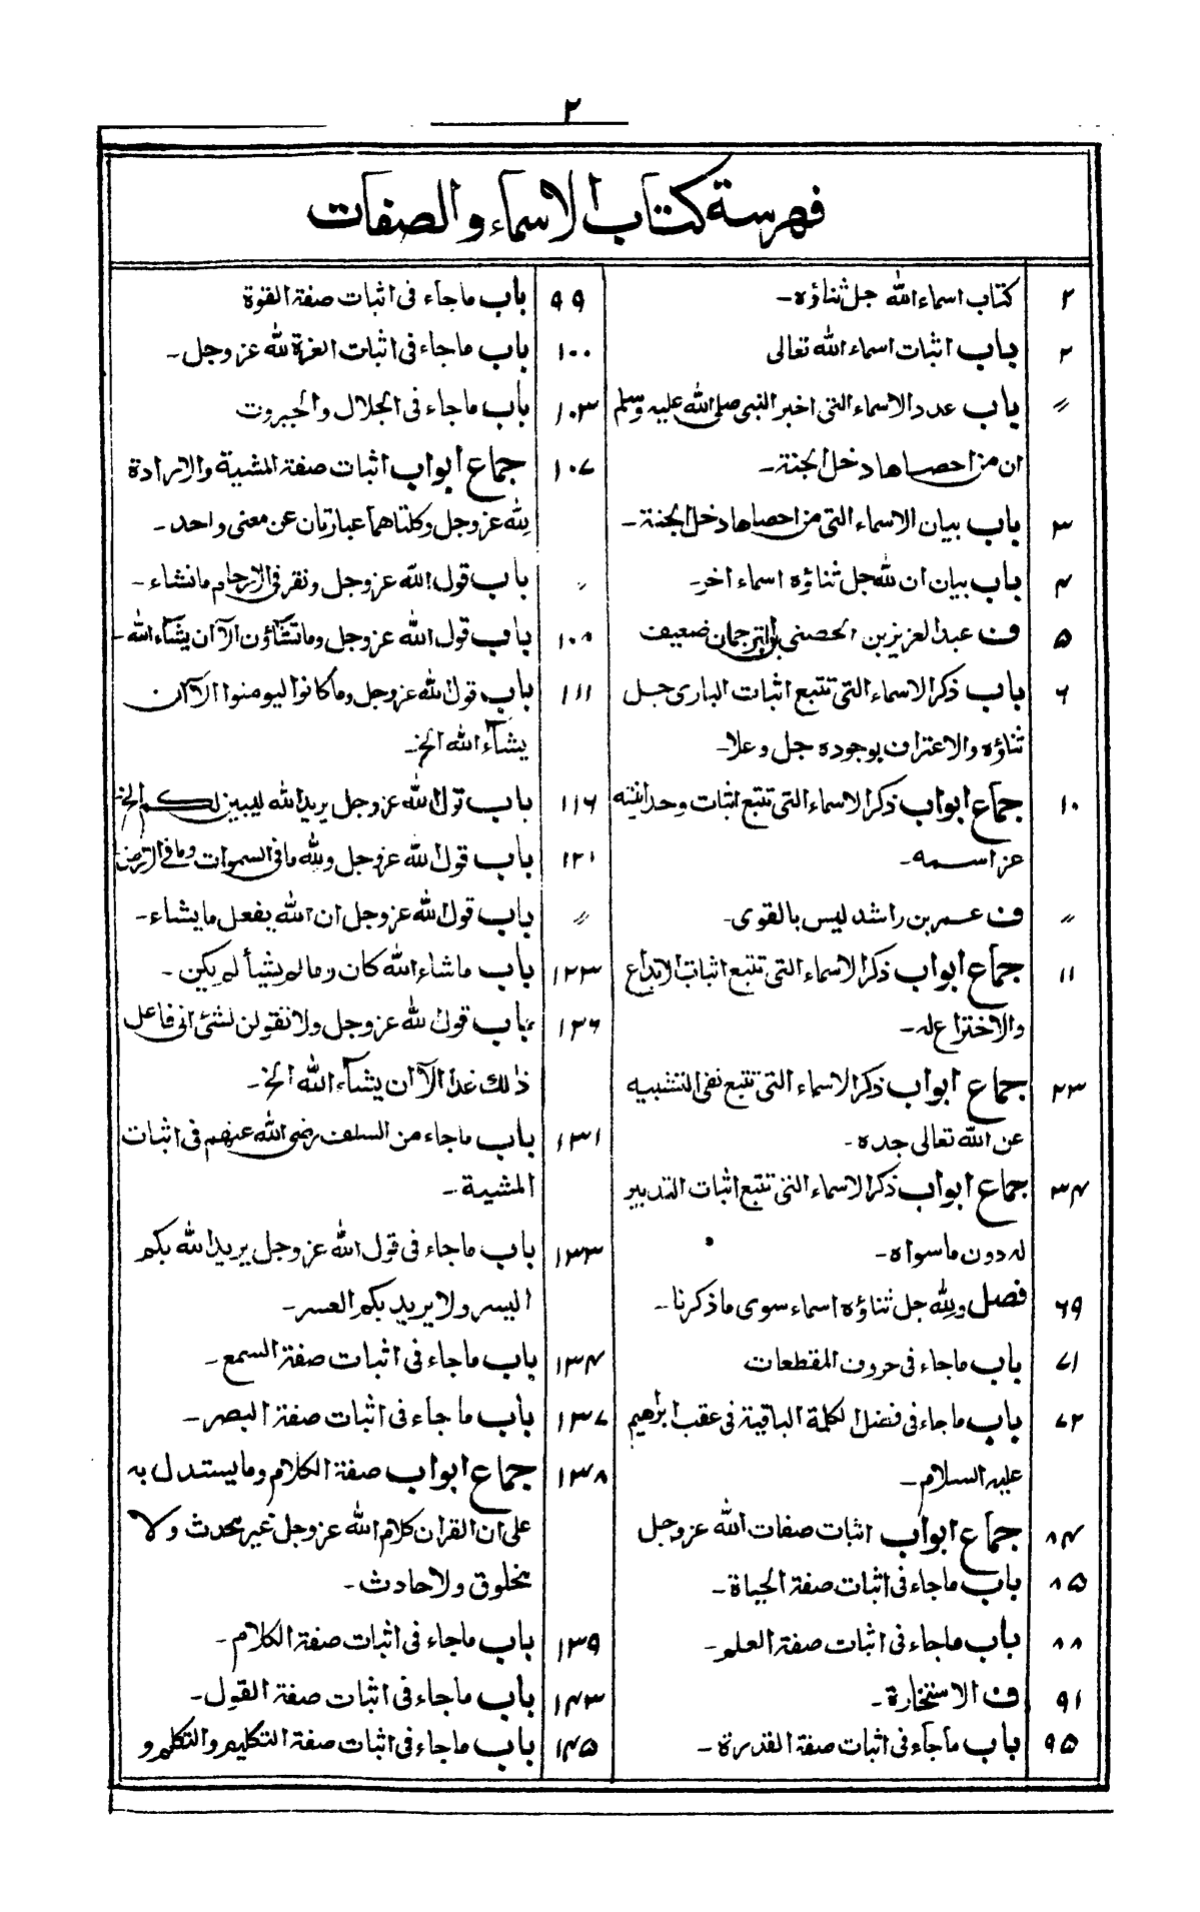 ٢
فهرسة كتاب الاسماء والصفات
٢ كتاب اسماء الله جل ثناؤه ـ
٢ باب اثبات اسماء الله تعالى
〃 باب عدد الاسماء التى اخبر النبى صلى الله عليه وسلم
ان من احصاها دخل الجنة ـ
٣ باب بيان الاسماء التى من احصاها دخل الجنة ـ
٤ باب بيان ان لله جل ثناؤه اسماء اخر ـ
٥ ف عبد العزيز بن الحصنى بن الترجمان ضعيف
٦ باب ذكر الاسماء التى تتبع اثبات البارى جل
ثناؤه والاعتراف بوجوده جل وعلا ـ
١٠ جماع ابواب ذكر الاسماء التى تتبع اثبات وحدانيته
عز اسمه ـ
〃 ف عمر بن راشد ليس بالقوى ـ
١١ جماع ابواب ذكر الاسماء التى تتبع اثبات الابداع
والاختراع له ـ
٢٣ جماع ابواب ذكر الاسماء التى تتبع نفى التشبيه
عن الله تعالى جده ـ
٣٤ جماع ابواب ذكر الاسماء التى تتبع اثبات التدبير
له دون ما سواه ـ
٦٩ فصل ولله جل ثناؤه اسماء سوى ما ذكرنا ـ
٧١ باب ما جاء فى حروف المقطعات
٧٢ باب ما جاء فى فضل الكلمة الباقية فى عقب ابرهيم
عليه السلام ـ
٨٤ جماع ابواب اثبات صفات الله عز وجل
٨٥ باب ما جاء فى اثبات صفة الحياة ـ
٨٨ باب ما جاء فى اثبات صفة العلم ـ
٩١ ف الاستخارة ـ
٩٥ باب ما جآء فى اثبات صفة القدرة ـ
٩٩ باب ما جاء فى اثبات صفة القوة
١٠٠ باب ما جاء فى اثبات العزة لله عز وجل ـ
١٠٣ باب ما جاء فى الجلال والجبروت
١٠٧ جماع ابواب اثبات صفة المشية والارادة
لله عز وجل وكلتاهما عبارتان عن معنى واحد ـ
〃 باب قول الله عز وجل ونقر فى الارحام ما نشاء ـ
١٠٨ باب قول الله عز وجل وما تشآؤن الآ ان يشآء الله ـ
١١١ باب قول الله عز وجل وما كانوا ليومنوا الآ ان
يشآء الله الخ ـ
١١٦ باب قول الله عز وجل يريد الله ليبين لكم الخ
١٢١ باب قول الله عز وجل ولله ما فى السموات وما فى الارض
〃 باب قول الله عز وجل ان الله يفعل ما يشاء ـ
١٢٣ باب ما شاء الله كان وما لم يشأ لم يكن ـ
١٢٦ باب قول الله عز وجل ولا تقولن لشئ انى فاعل
ذلك غدا الآ ان يشآء الله الخ ـ
١٣١ باب ما جاء من السلف رضى الله عنهم فى اثبات
المشية ـ
١٣٣ باب ما جاء فى قول الله عز وجل يريد الله بكم
اليسر ولا يريد بكم العسر ـ
١٣٤ باب ما جاء فى اثبات صفة السمع ـ
١٣٧ باب ما جآء فى اثبات صفة البصر ـ
١٣٨ جماع ابواب صفة الكلام وما يستدل به
على ان القران كلام الله عز وجل غير محدث ولا
مخلوق ولا حادث ـ
١٣٩ باب ما جاء فى اثبات صفة الكلام ـ
١٤٣ باب ما جاء فى اثبات صفة القول ـ
١٤٥ باب ما جاء فى اثبات صفة التكليم والتكلم و